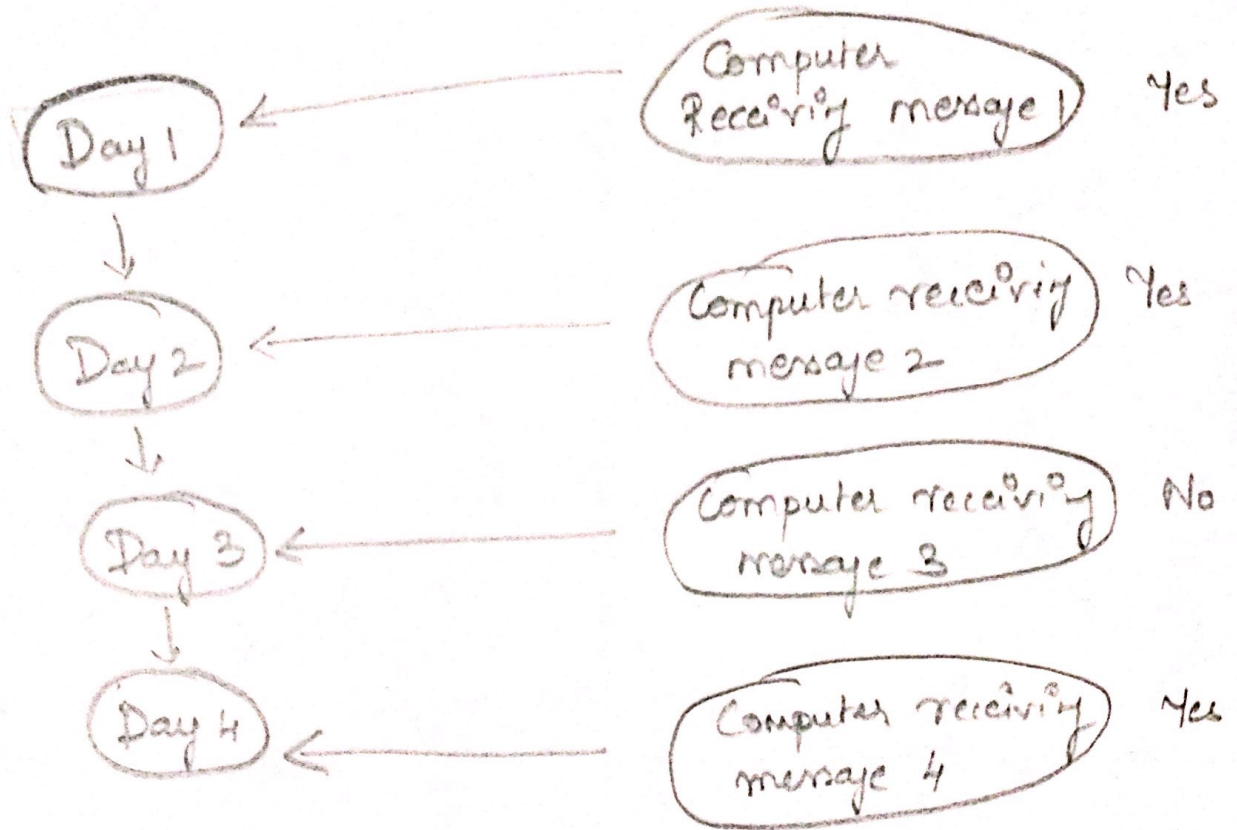 Day 1
Computer
Receiving message 1
Yes
Day 2
Computer receiving
message 2
Yes
Day 3
Computer receiving
message 3
No
Day 4
Computer receiving
message 4
Yes